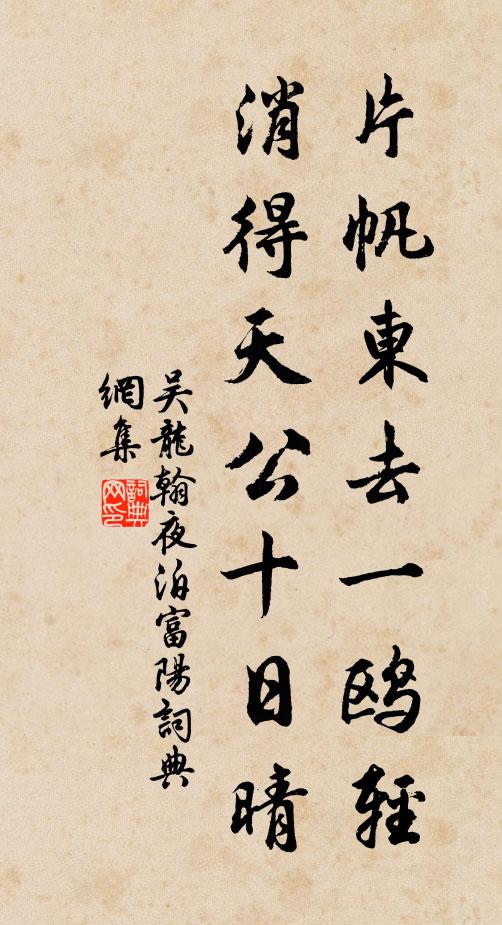 片帆東去一鸥輕
消得天公十日晴
吴龍翰夜泊富陽詞典
網集
詞典網印